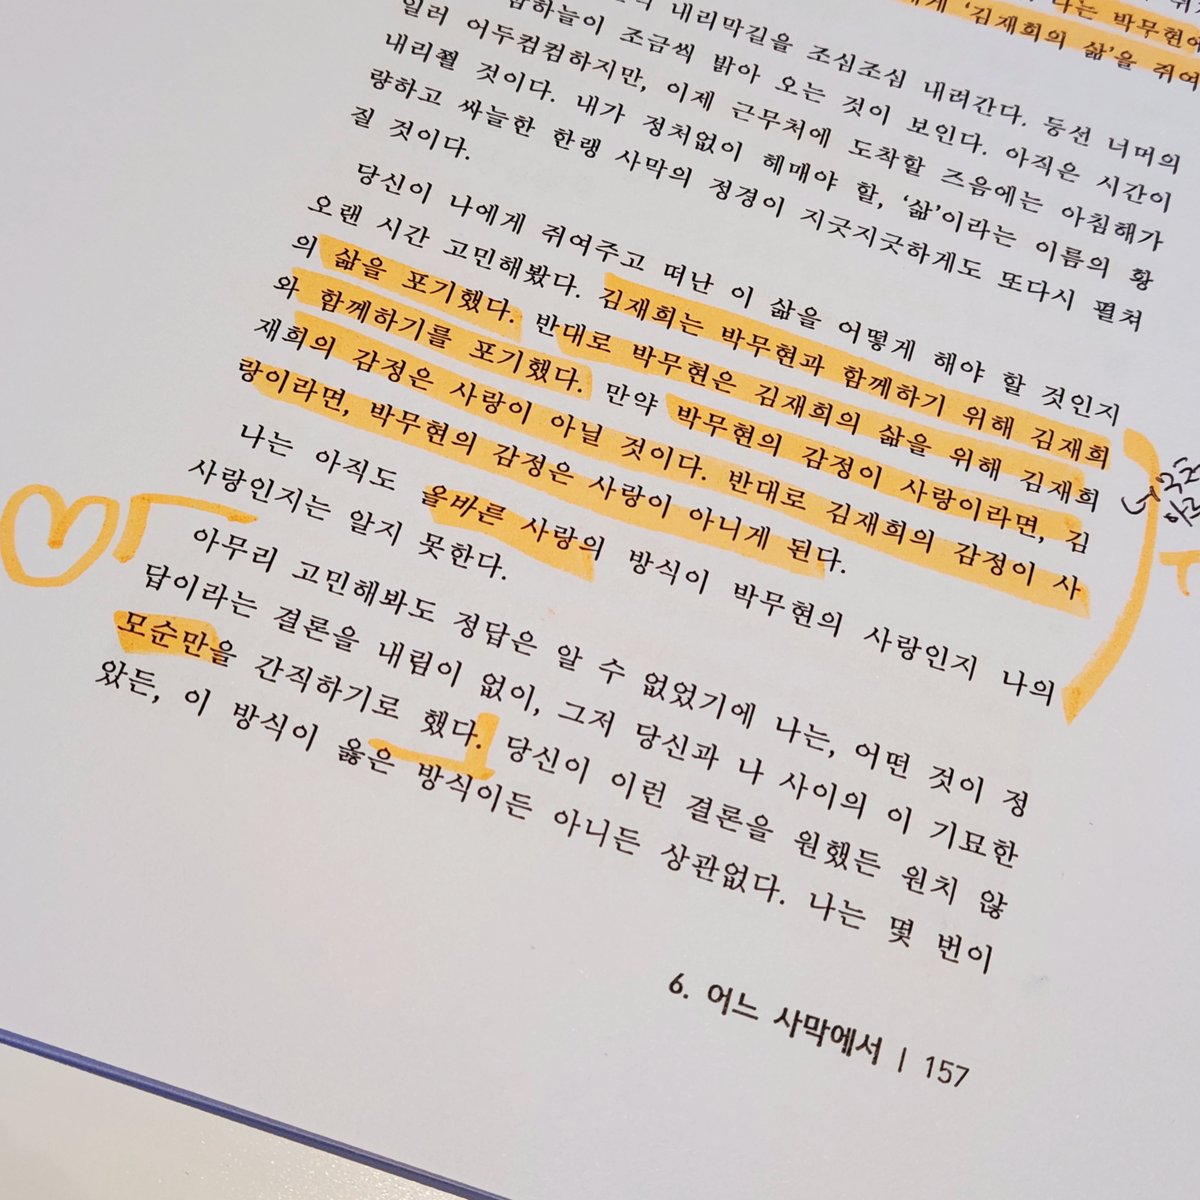 나는 박무현에
에게 '김재희의 삶'을 쥐여
내리막길을 조심조심 내려간다. 등선 너머의
조금씩 밝아 오는 것이 보인다. 아직은 시간이
일러 어두컴컴하지만, 이제 근무처에 도착할 즈음에는 아침해가
내리쬘 것이다. 내가 정처없이 헤매야 할, '삶'이라는 이름의 황
량하고 싸늘한 한랭 사막의 정경이 지긋지긋하게도 또다시 펼쳐
질 것이다.
당신이 나에게 쥐여주고 떠난 이 삶을 어떻게 해야 할 것인지
오랜 시간 고민해봤다. 김재희는 박무현과 함께하기 위해 김재희
의 삶을 포기했다. 반대로 박무현은 김재희의 삶을 위해 김재희
와 함께하기를 포기했다. 만약 박무현의 감정이 사랑이라면, 김
재희의 감정은 사랑이 아닐 것이다. 반대로 김재희의 감정이 사
랑이라면, 박무현의 감정은 사랑이 아니게 된다.
나는 아직도 올바른 사랑의 방식이 박무현의 사랑인지 나의
사랑인지는 알지 못한다.
아무리 고민해봐도 정답은 알 수 없었기에 나는, 어떤 것이 정
답이라는 결론을 내림이 없이, 그저 당신과 나 사이의 이 기묘한
모순만을 간직하기로 했다. 당신이 이런 결론을 원했든 원치 않
았든, 이 방식이 옳은 방식이든 아니든 상관없다. 나는 몇 번이
6. 어느 사막에서 | 157